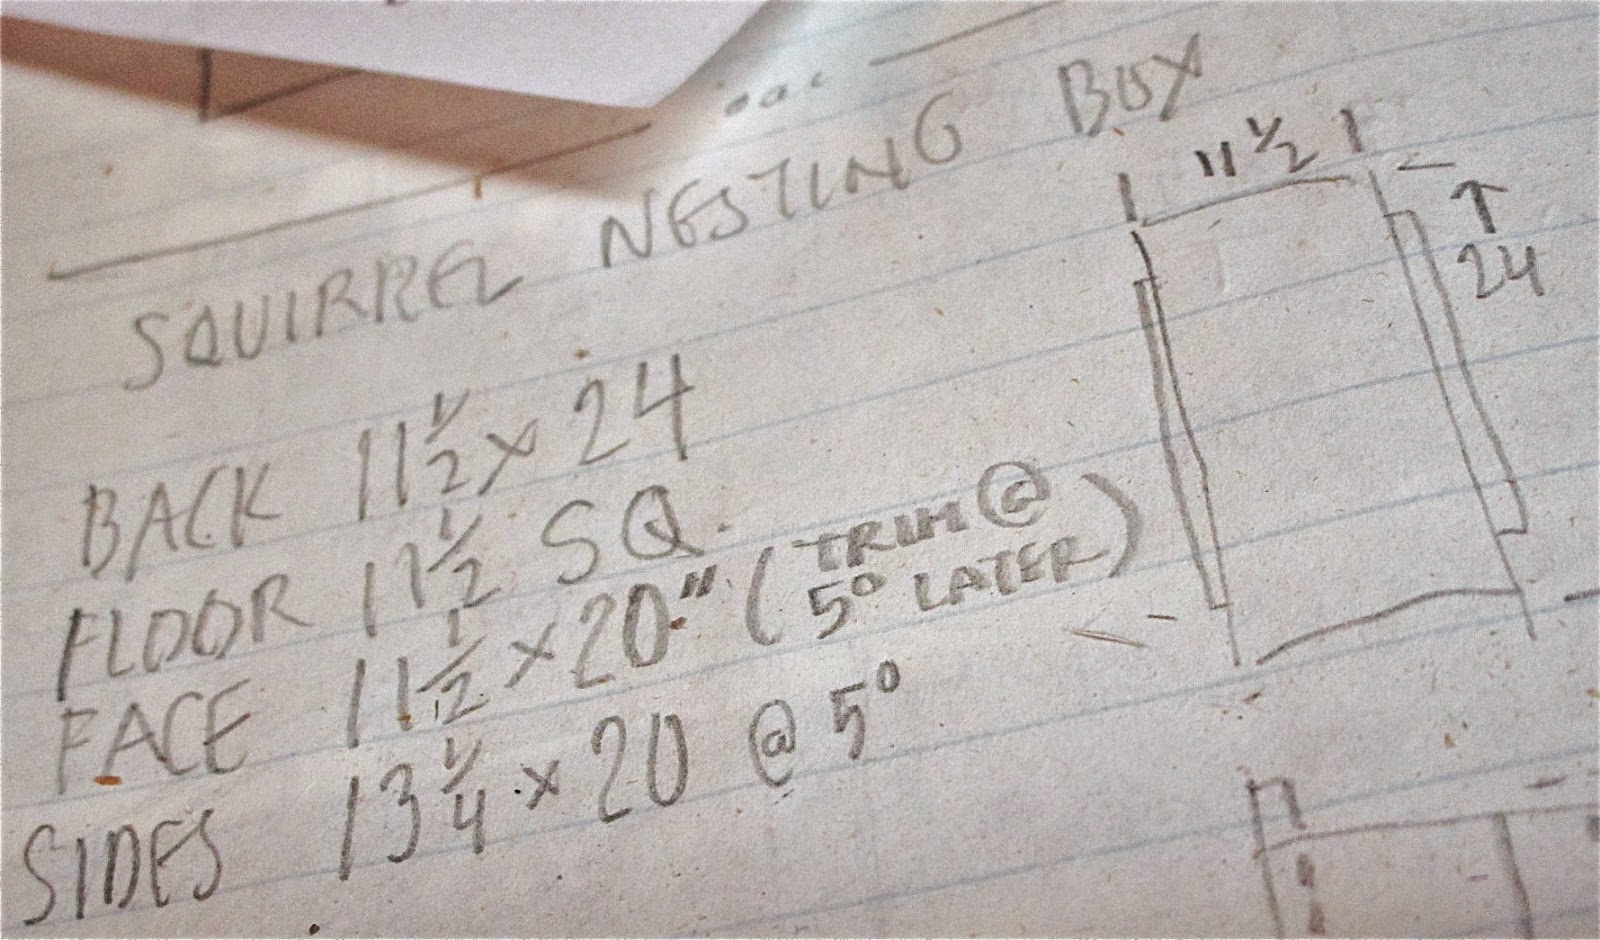 SQUIRREL NESTING BOX
11 1/2
24
BACK 11 1/2 x 24
FLOOR 11 1/2 SQ.
FACE 11 1/2 x 20" (TRIM @
5° LATER)
SIDES 13 1/4 x 20 @ 5°